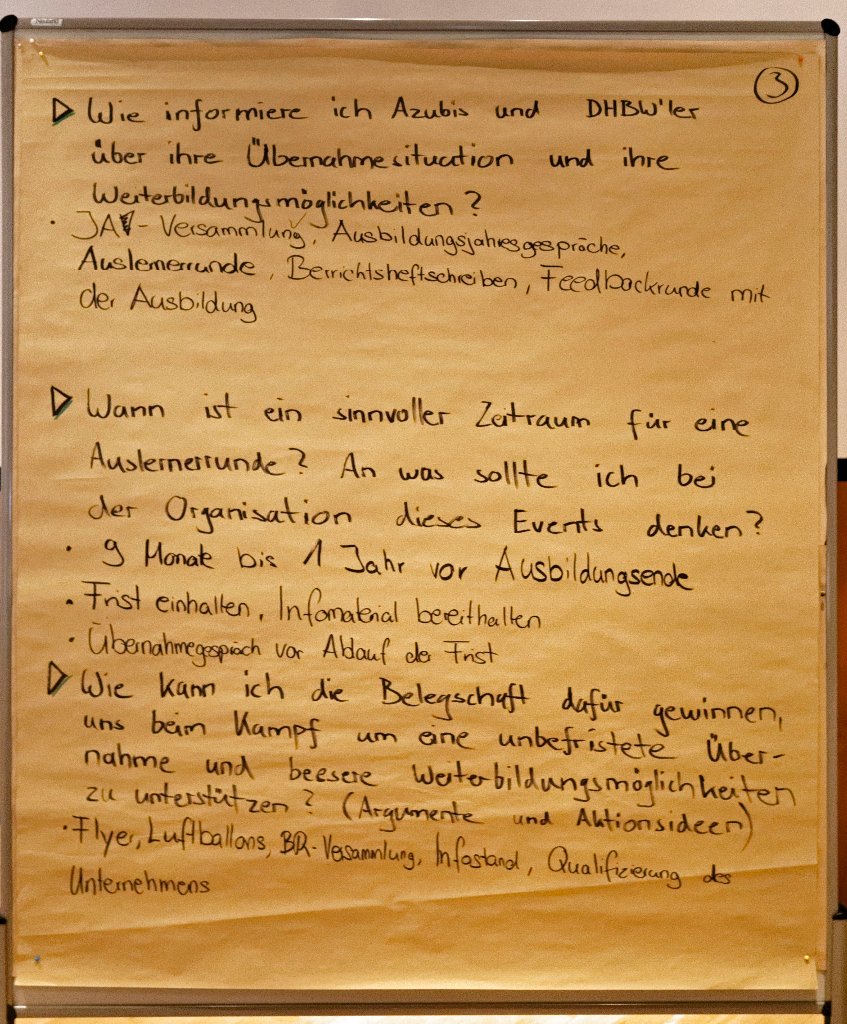 Neuland
③
▷ Wie informiere ich Azubis und DHBW'ler
über ihre Übernahmesituation und ihre
Weiterbildungsmöglichkeiten?
· JAV-Versammlung, Ausbildungsjahresgespräche,
Auslernerrunde, Berrichtsheftschreiben, Feedbackrunde mit
der Ausbildung
▷ Wann ist ein sinnvoller Zeitraum für eine
Auslernerrunde? An was sollte ich bei
der Organisation dieses Events denken?
· 9 Monate bis 1 Jahr vor Ausbildungsende
· Frist einhalten, Infomaterial bereithalten
· Übernahmegespräch vor Ablauf der Frist
▷ Wie kann ich die Belegschaft dafür gewinnen,
uns beim Kampf um eine unbefristete Über-
nahme und beesere Weiterbildungsmöglichkeiten
zu unterstützen? (Argumente und Aktionsideen)
· Flyer, Luftballons, BR-Versammlung, Infostand, Qualifizierung des
Unternehmens